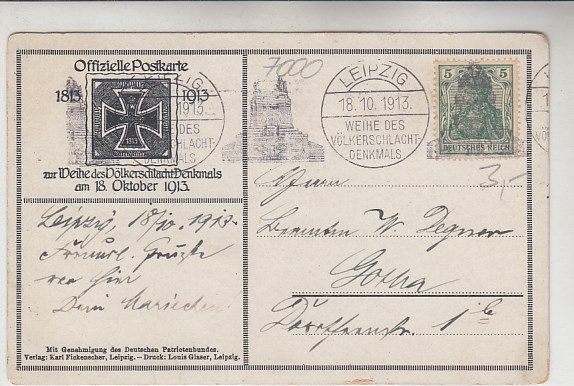 Offizielle Postkarte
1813 1913
1813
zur Weihe des Völkerschlacht-Denkmals
am 18. Oktober 1913.
Leipzig, 18/10. 1913.
Freundl. Grüße
von hier
Dein Mariechen
Mit Genehmigung des Deutschen Patriotenbundes.
Verlag: Karl Fickenscher, Leipzig. – Druck: Louis Glaser, Leipzig.
7000
LEIPZIG
18.10.1913.
WEIHE DES
VÖLKERSCHLACHT-
DENKMALS
LEIPZIG
18.10.1913.
WEIHE DES
VÖLKERSCHLACHT-
DENKMALS
5 5
DEUTSCHES REICH
3,-
Herrn
Beamten W. Degner
Gotha
1 b